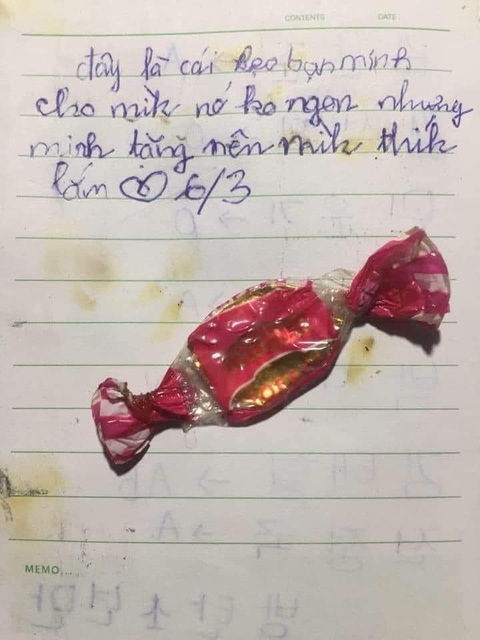 CONTENTS DATE
đây là cái kẹo bạn mình
cho mik nó ko ngon nhưng
minh tặng nên mik thik
lắm ♡ 6/3
MEMO...